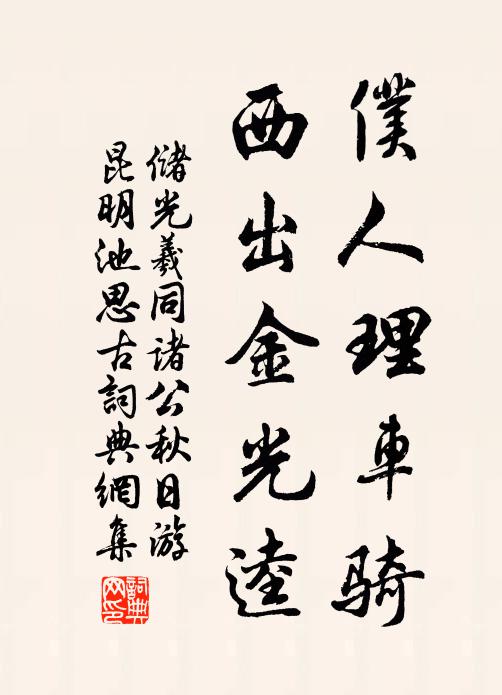 僕人理車騎
西出金光逵
儲光羲同諸公秋日游
昆明池思古詞典網集
詞典網印